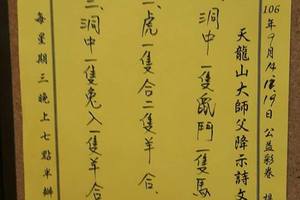 106年9月14日19日公益彩券
天龍山大師父降示詩文
洞中一隻鼠鬥一隻馬
二、虎一隻合二隻羊合
三、洞中一隻兔入一隻羊合
每星期三晚上七點半辦